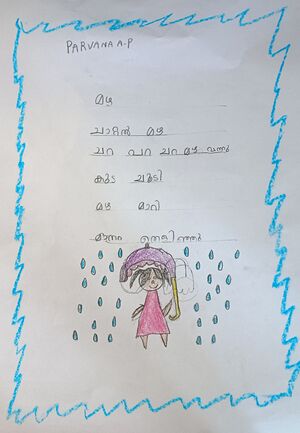 PARVANA A.P
മഴ
ചാറ്റൽ മഴ
ചറ പറ ചറ മഴ വന്നു
കുട ചൂടി
മഴ മാറി
മാനം തെളിഞ്ഞു